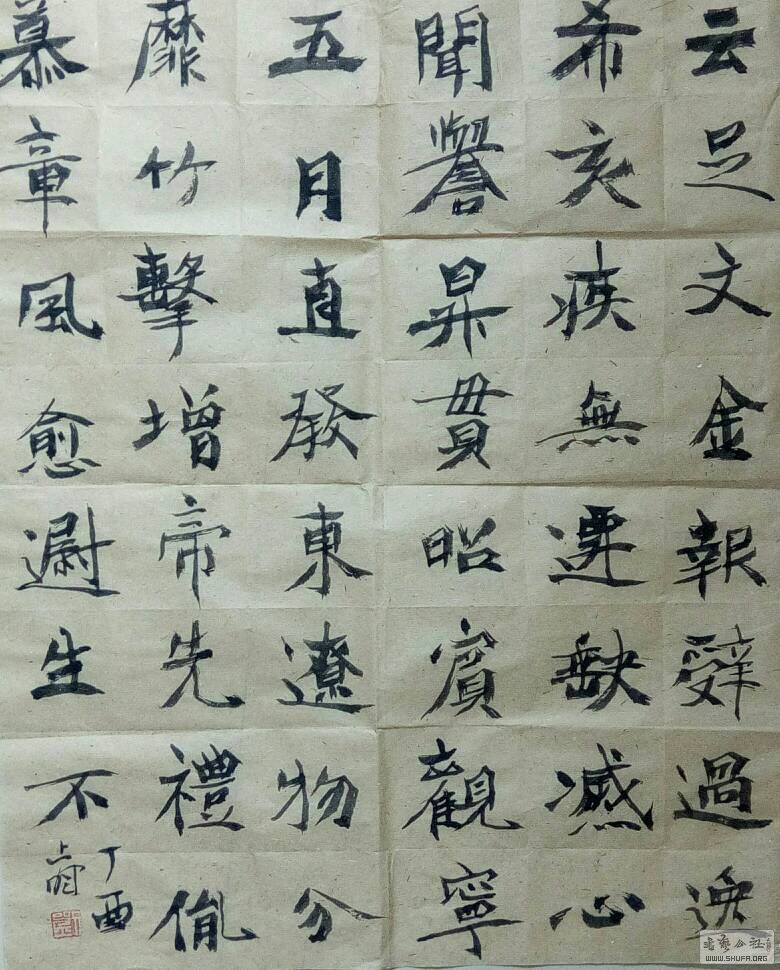 云足文金報辤過逸
希亥疾無遷缺滅心
聞譽昇貫昭賓觀寧
五月直發東遼物分
靡竹擊增帝先禮胤
慕章風愈遯生不
丁酉
书艺公社
WWW.SHUFA.ORG